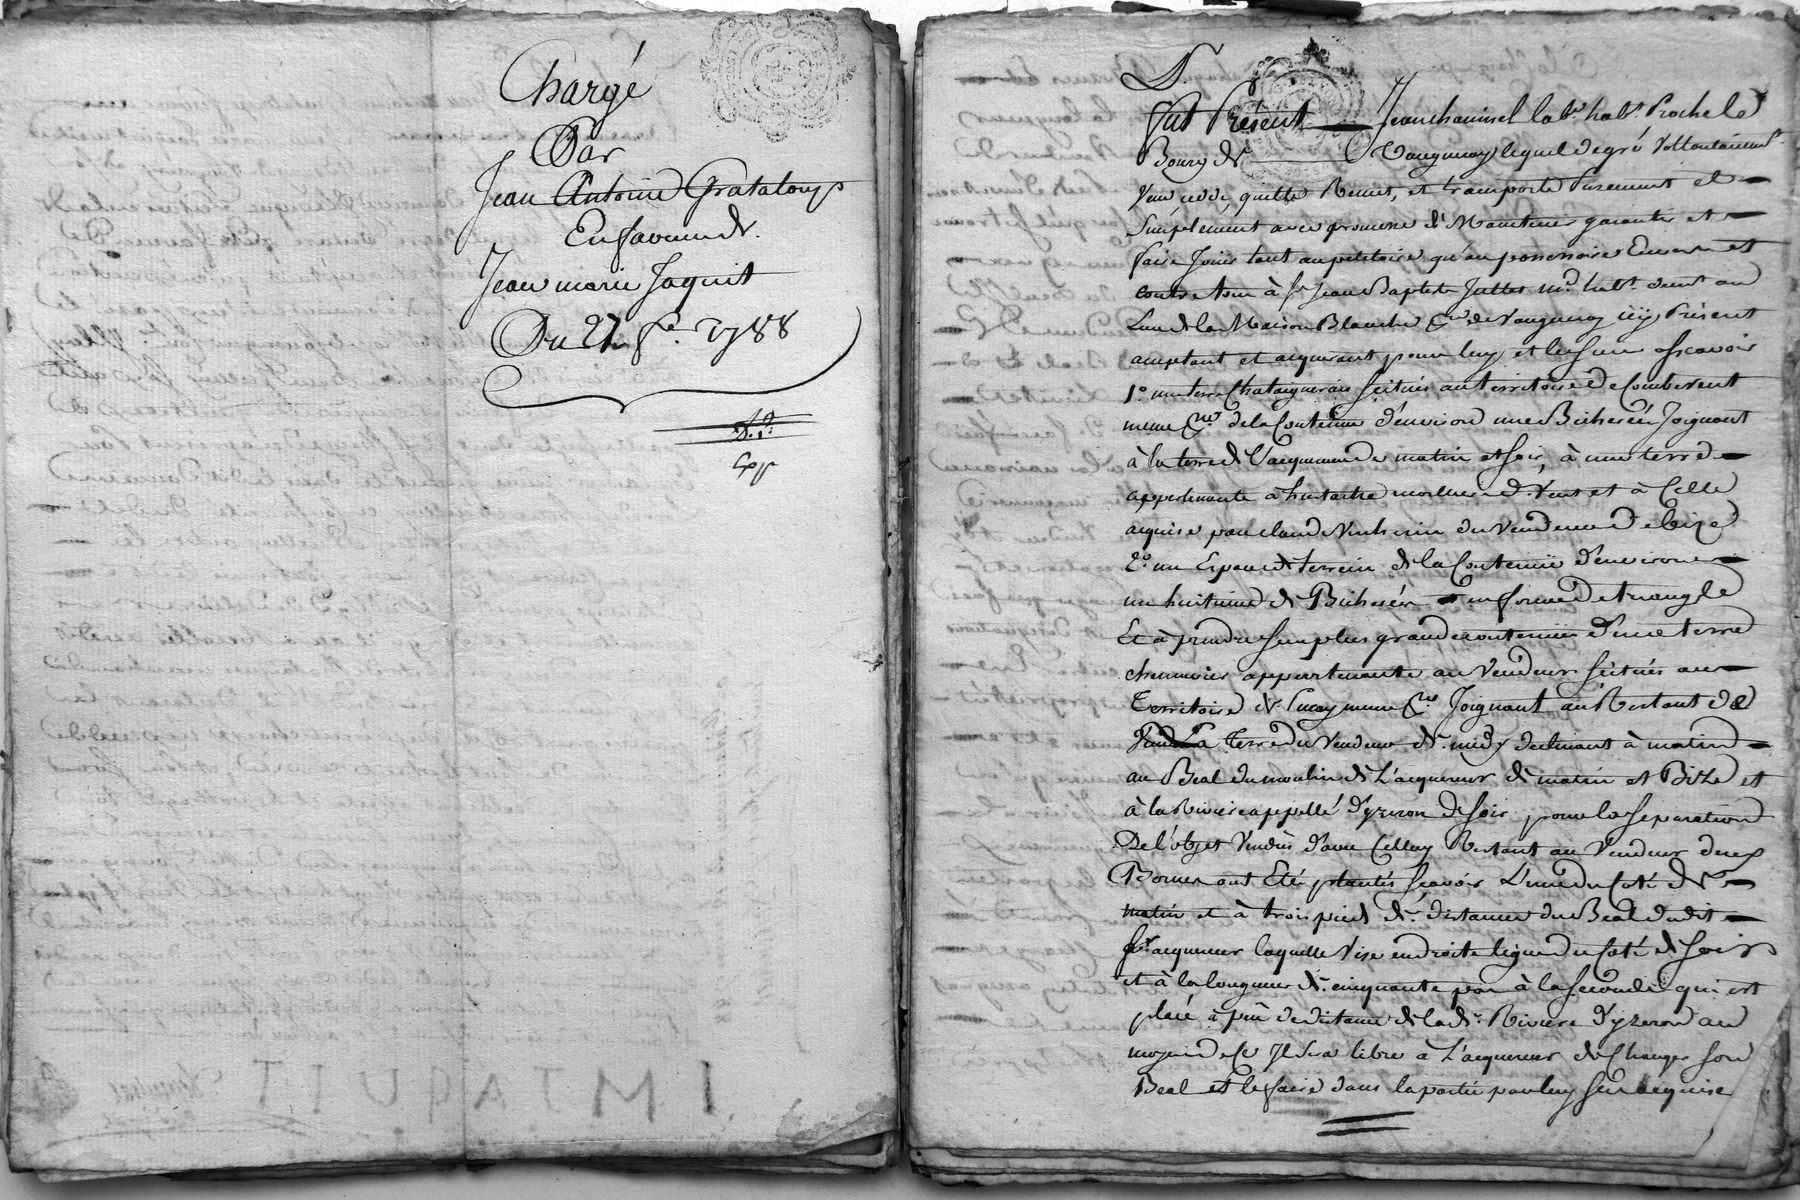 Chargé
Par
Jean Antoine Grataloup
En faveur de
Jean marie Jaquit
Du 27 1788
Fut Présent Jean chauinel lab.r hab.t Proche le
Bourg de Vaugneray lequel de gré vollontairem.t
Vend, cedde, quitte Remet, et transporte Purement et
Simplement avec promesse de Maintenir garantir et
faire Jouir tant au petitoire qu'au possessoire Envers et
contre tous à s.r Jean Baptiste Jullet m.d hab.t
Lieu de la Maison Blanche P.sse de Vaugneray icy Présent
acceptant et acquerant pour luy et les siens ascavoir
1.o une terre Chataigneraie scituée au territoire de Combevent
meme P.sse de la Contenue d'environ une Bicherée Joignant
à la terre de l'acquereur de matin et soir, à une terre
appartenante à de Vent et à Celle
acquise par claude du vendeur de bize
2.o un Espace de terrein de la Contenue d'environ
un huitieme de Bicherée en forme de triangle
Et à prendre sur plus grande contenue d'une terre
cheneviere appartenante au vendeur scituée au
Territoire de meme P.sse Joignant au Restant de
La Terre du vendeur de midy declinant à matin
au Beal du moulin de L'acquereur de matin et Bize et
à la Riviere appellé d'yzeron de soir, pour la separation
De l'objet Vendus d'avec Celluy Restant au Vendeur deux
Bornes ont Eté plantés scavoir L'une du Coté de
matin et à trois pieds de distance du Beal dudit
s.r acquereur laquelle Vise en droite ligne du Coté de soir
et à la longueur de cinquante pas à la seconde qui est
placé à peu de distance de lad.e Riviere d'yzeron au
moyen de ce Il sera libre à L'acquereur de Changer son
Beal et le faire dans la partie par luy acquise
I M J A Q U I T